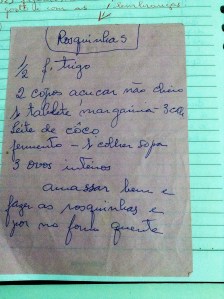 com as lembranças
Rosquinhas
1/2 f. trigo
2 copos acucar não cheio
1 tablete margarina 3 col
leite de côco
fermento - 1 colher sopa
3 ovos inteiros
amassar bem e
fazer as rosquinhas e
por no forno quente